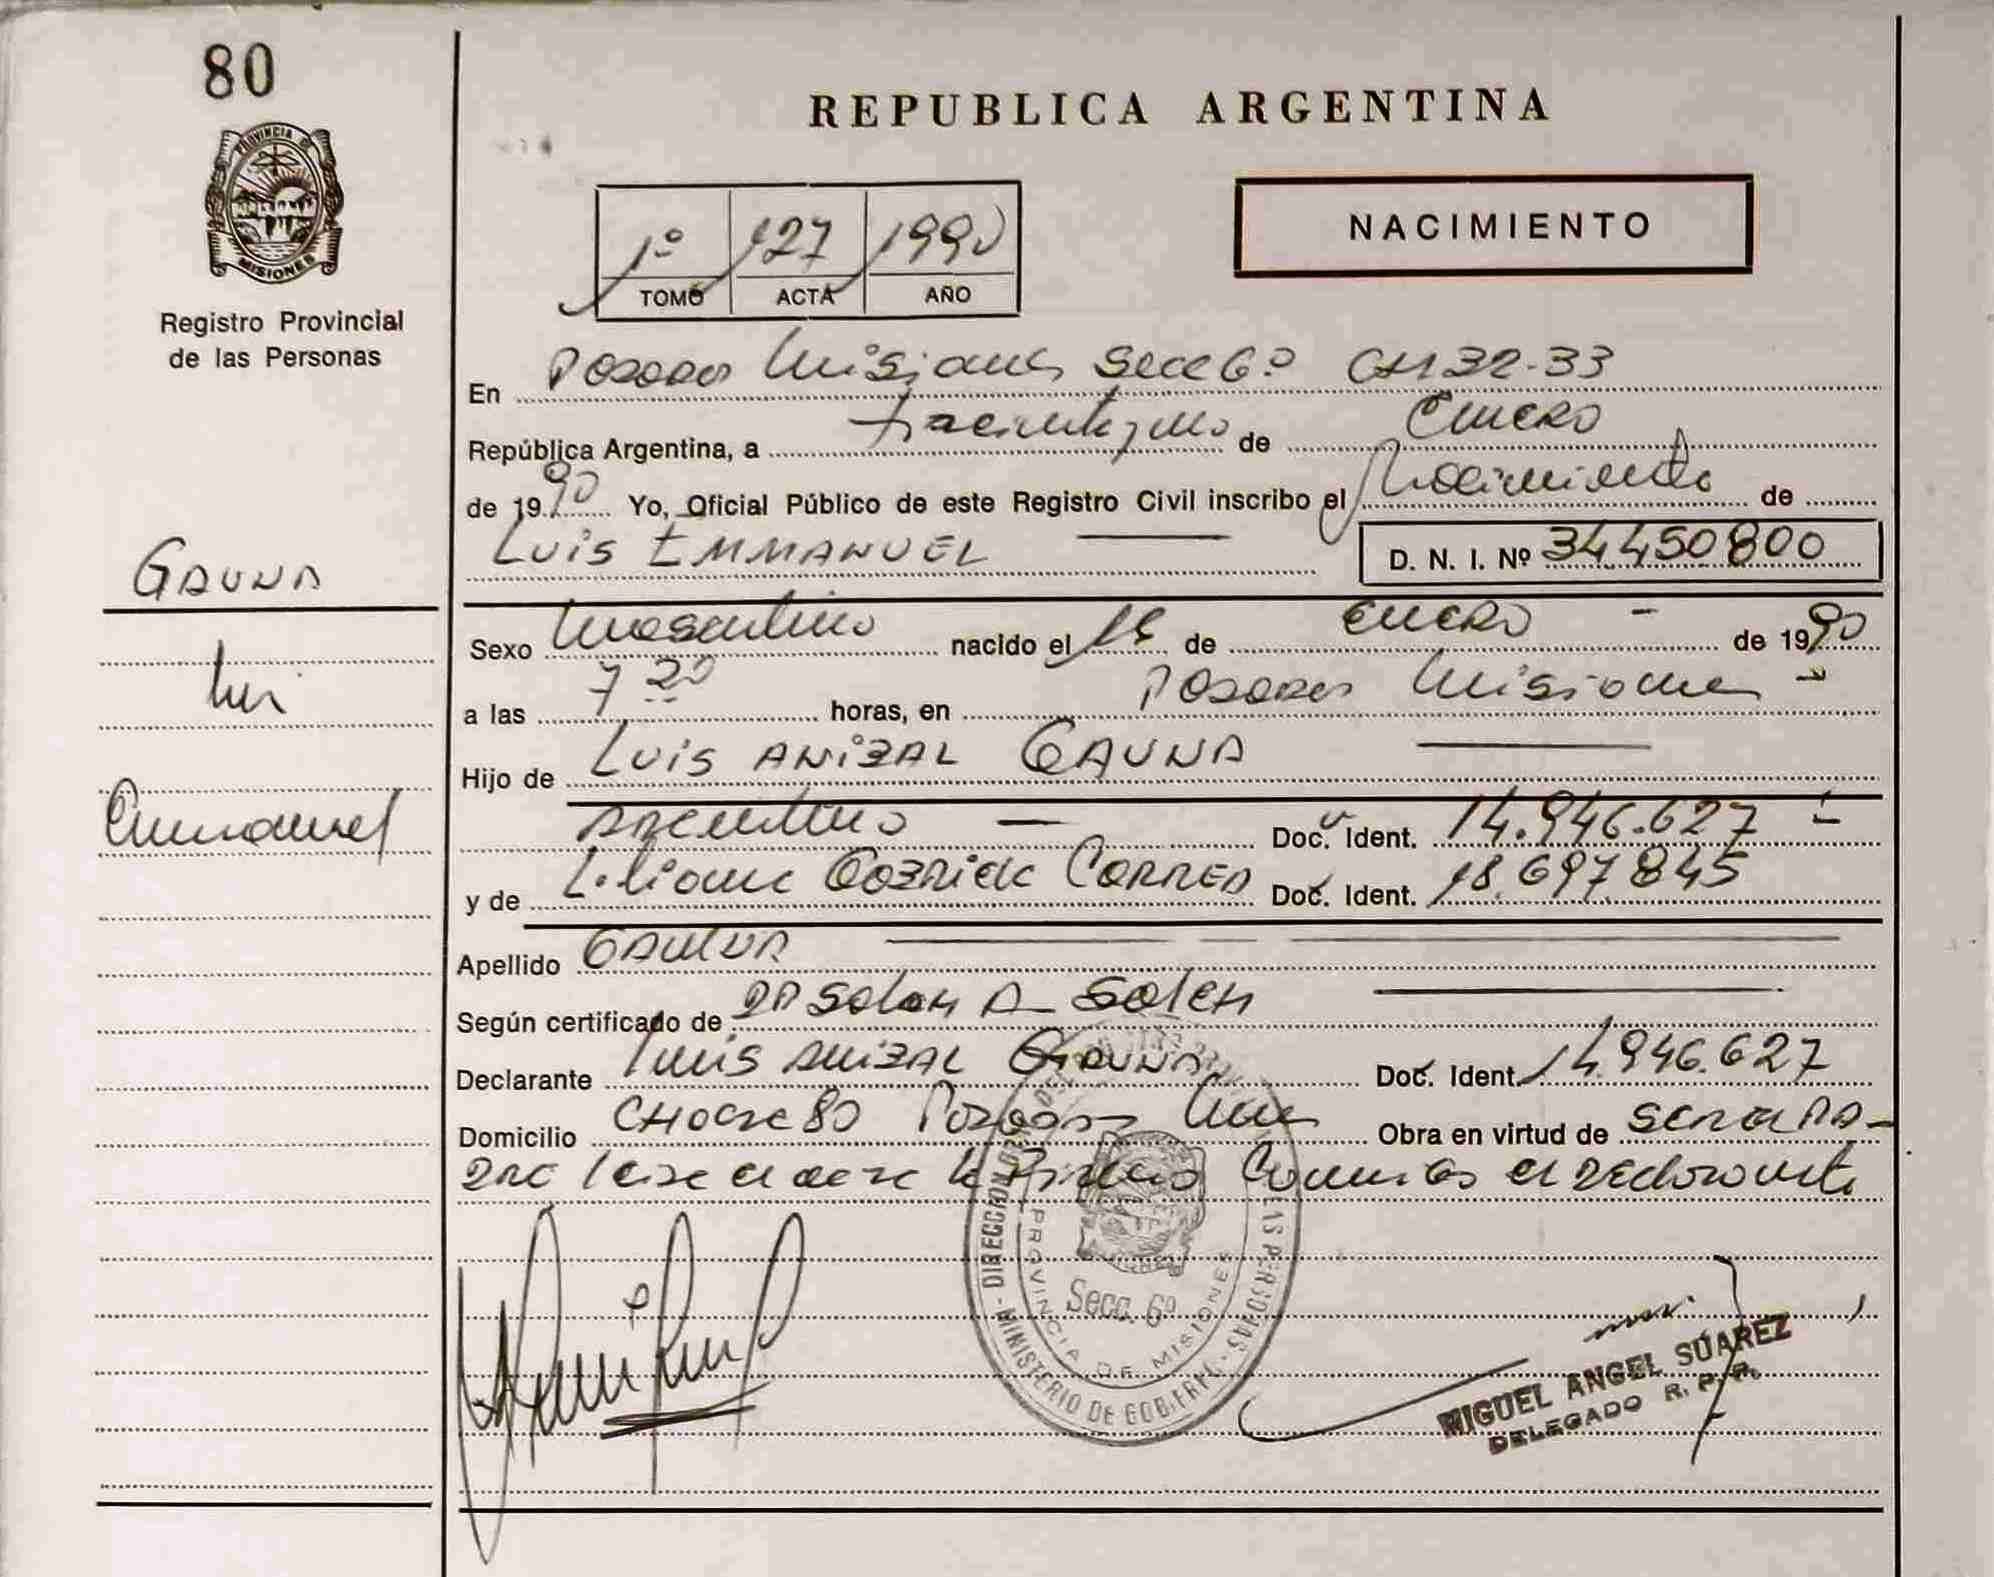 80
PROVINCIA DE
MISIONES
Registro Provincial
de las Personas
REPUBLICA ARGENTINA
NACIMIENTO
1º 127 1990
TOMO ACTA AÑO
En Posadas Misiones Secc 6º CH 32-33
República Argentina, a treinta y uno de Enero
de 1990 Yo, Oficial Público de este Registro Civil inscribo el Nacimiento de
LUIS EMMANUEL D. N. I. Nº 34450800
GAUNA
Luis
Emmanuel
Sexo Masculino nacido el de Enero de 1990
a las 7 20 horas, en Posadas Misiones
Hijo de LUIS ANIBAL GAUNA
Argentino Doc. Ident. 14.946.627
y de Liliana Gabriela Correa Doc. Ident. 18.697.845
Apellido GAUNA
Según certificado de DR Solon A
Declarante Luis Anibal GAUNA Doc. Ident. 14.946.627
Domicilio 80 Posadas Obra en virtud de
Leida el acta la el declarante
MINISTERIO DE GOBIERNO
PROVINCIA DE MISIONES
Secc. 6º
MIGUEL ANGEL SUAREZ
DELEGADO R. P. P.